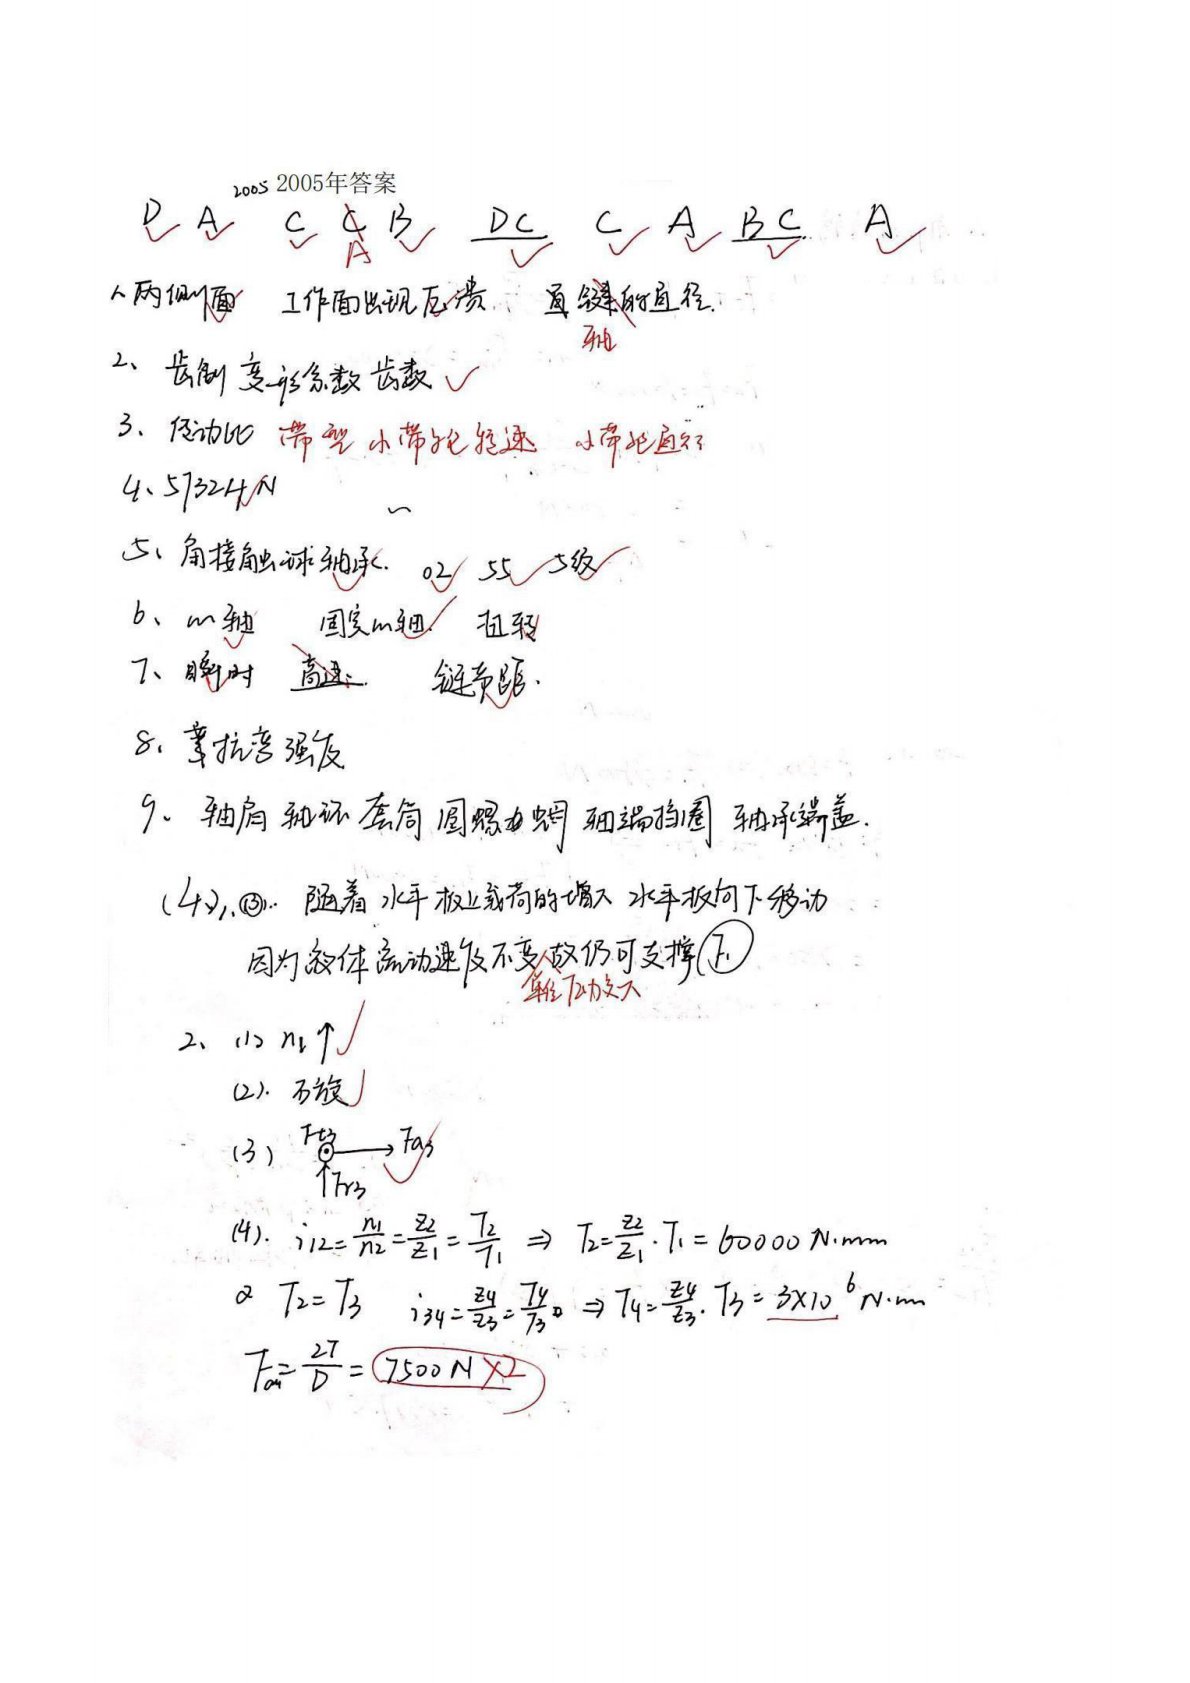 2005 2005年答案
D A C C B DC C A BC A
A
1、两侧面 工作面出现压溃、 键的直径.
轴
2、齿制 变形系数 齿数
3、传动比 带型 小带轮转速 小带轮直径
4、57324N
5、角接触球轴承. 02 55 5级
6、心轴 固定心轴. 扭转
7、瞬时 高速 链节距.
8、弯抗弯强度
9、轴肩 轴环 套筒 圆螺母 轴端挡圈 轴承端盖.
(四)、1、③. 随着水平板上载荷的增大 水平板向下移动
因为液体流动速度不变 故仍可支撑 F.
压力变大
2、(1) n₁↑
(2). 右旋
(3) Ft3 Fa3
Fr3
(4). i12=n1/n2=Z2/Z1=T2/T1 ⇒ T2=Z2/Z1·T1=60000N·mm
T2=T3 i34=Z4/Z3=T4/T3 ⇒ T4=Z4/Z3·T3=3×10⁶N·mm
=2T/D=7500N ×2